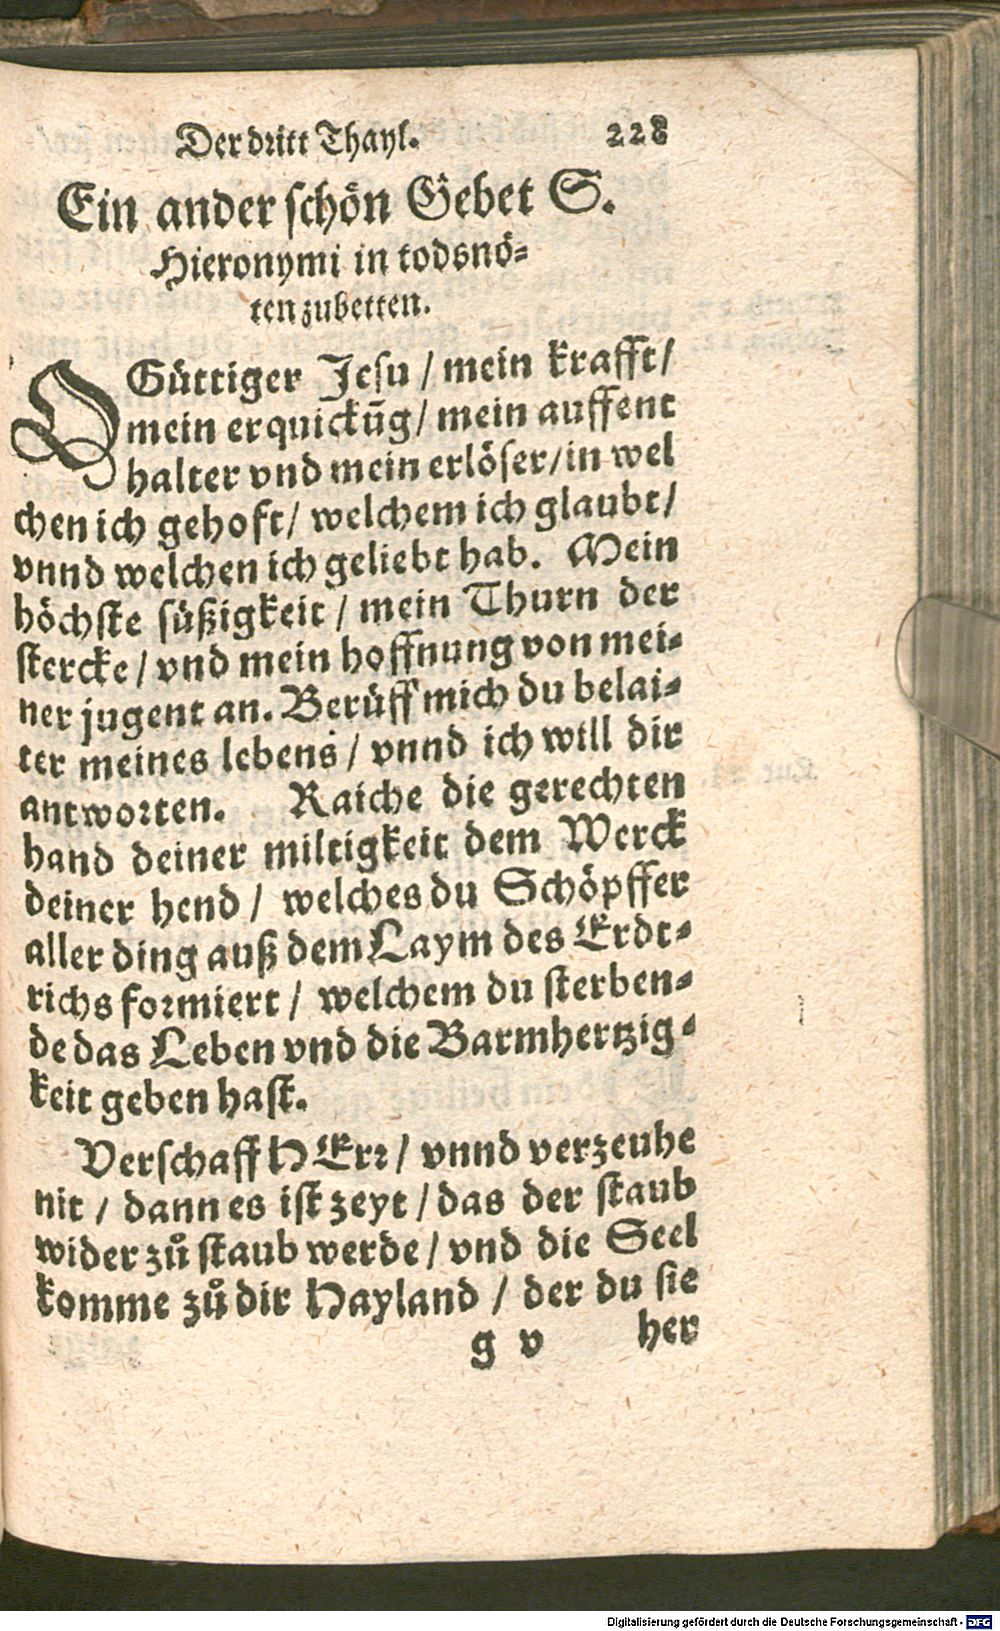 Der dritt Thayl. 228
Ein ander schön Gebet S.
Hieronymi in todsnö⸗
ten zubetten.
O Güttiger Jesu / mein krafft/
mein erquickūg/ mein auffent
halter vnd mein erlöser/in wel
chen ich gehoft/ welchem ich glaubt/
vnnd welchen ich geliebt hab. Mein
höchste süßigkeit / mein Thurn der
stercke / vnd mein hoffnung von mei⸗
ner jugent an. Berüff mich du belai⸗
ter meines lebens / vnnd ich will dir
antworten. Raiche die gerechten
hand deiner miltigkeit dem Werck
deiner hend / welches du Schöpffer
aller ding auß dem Laym des Erdt⸗
richs formiert / welchem du sterben⸗
de das Leben vnd die Barmhertzig⸗
keit geben hast.
Verschaff HErr / vnnd verzeuhe
nit / dann es ist zeyt / das der staub
wider zů staub werde / vnd die Seel
komme zů dir Hayland / der du sie
g v her
Digitalisierung gefördert durch die Deutsche Forschungsgemeinschaft - DFG